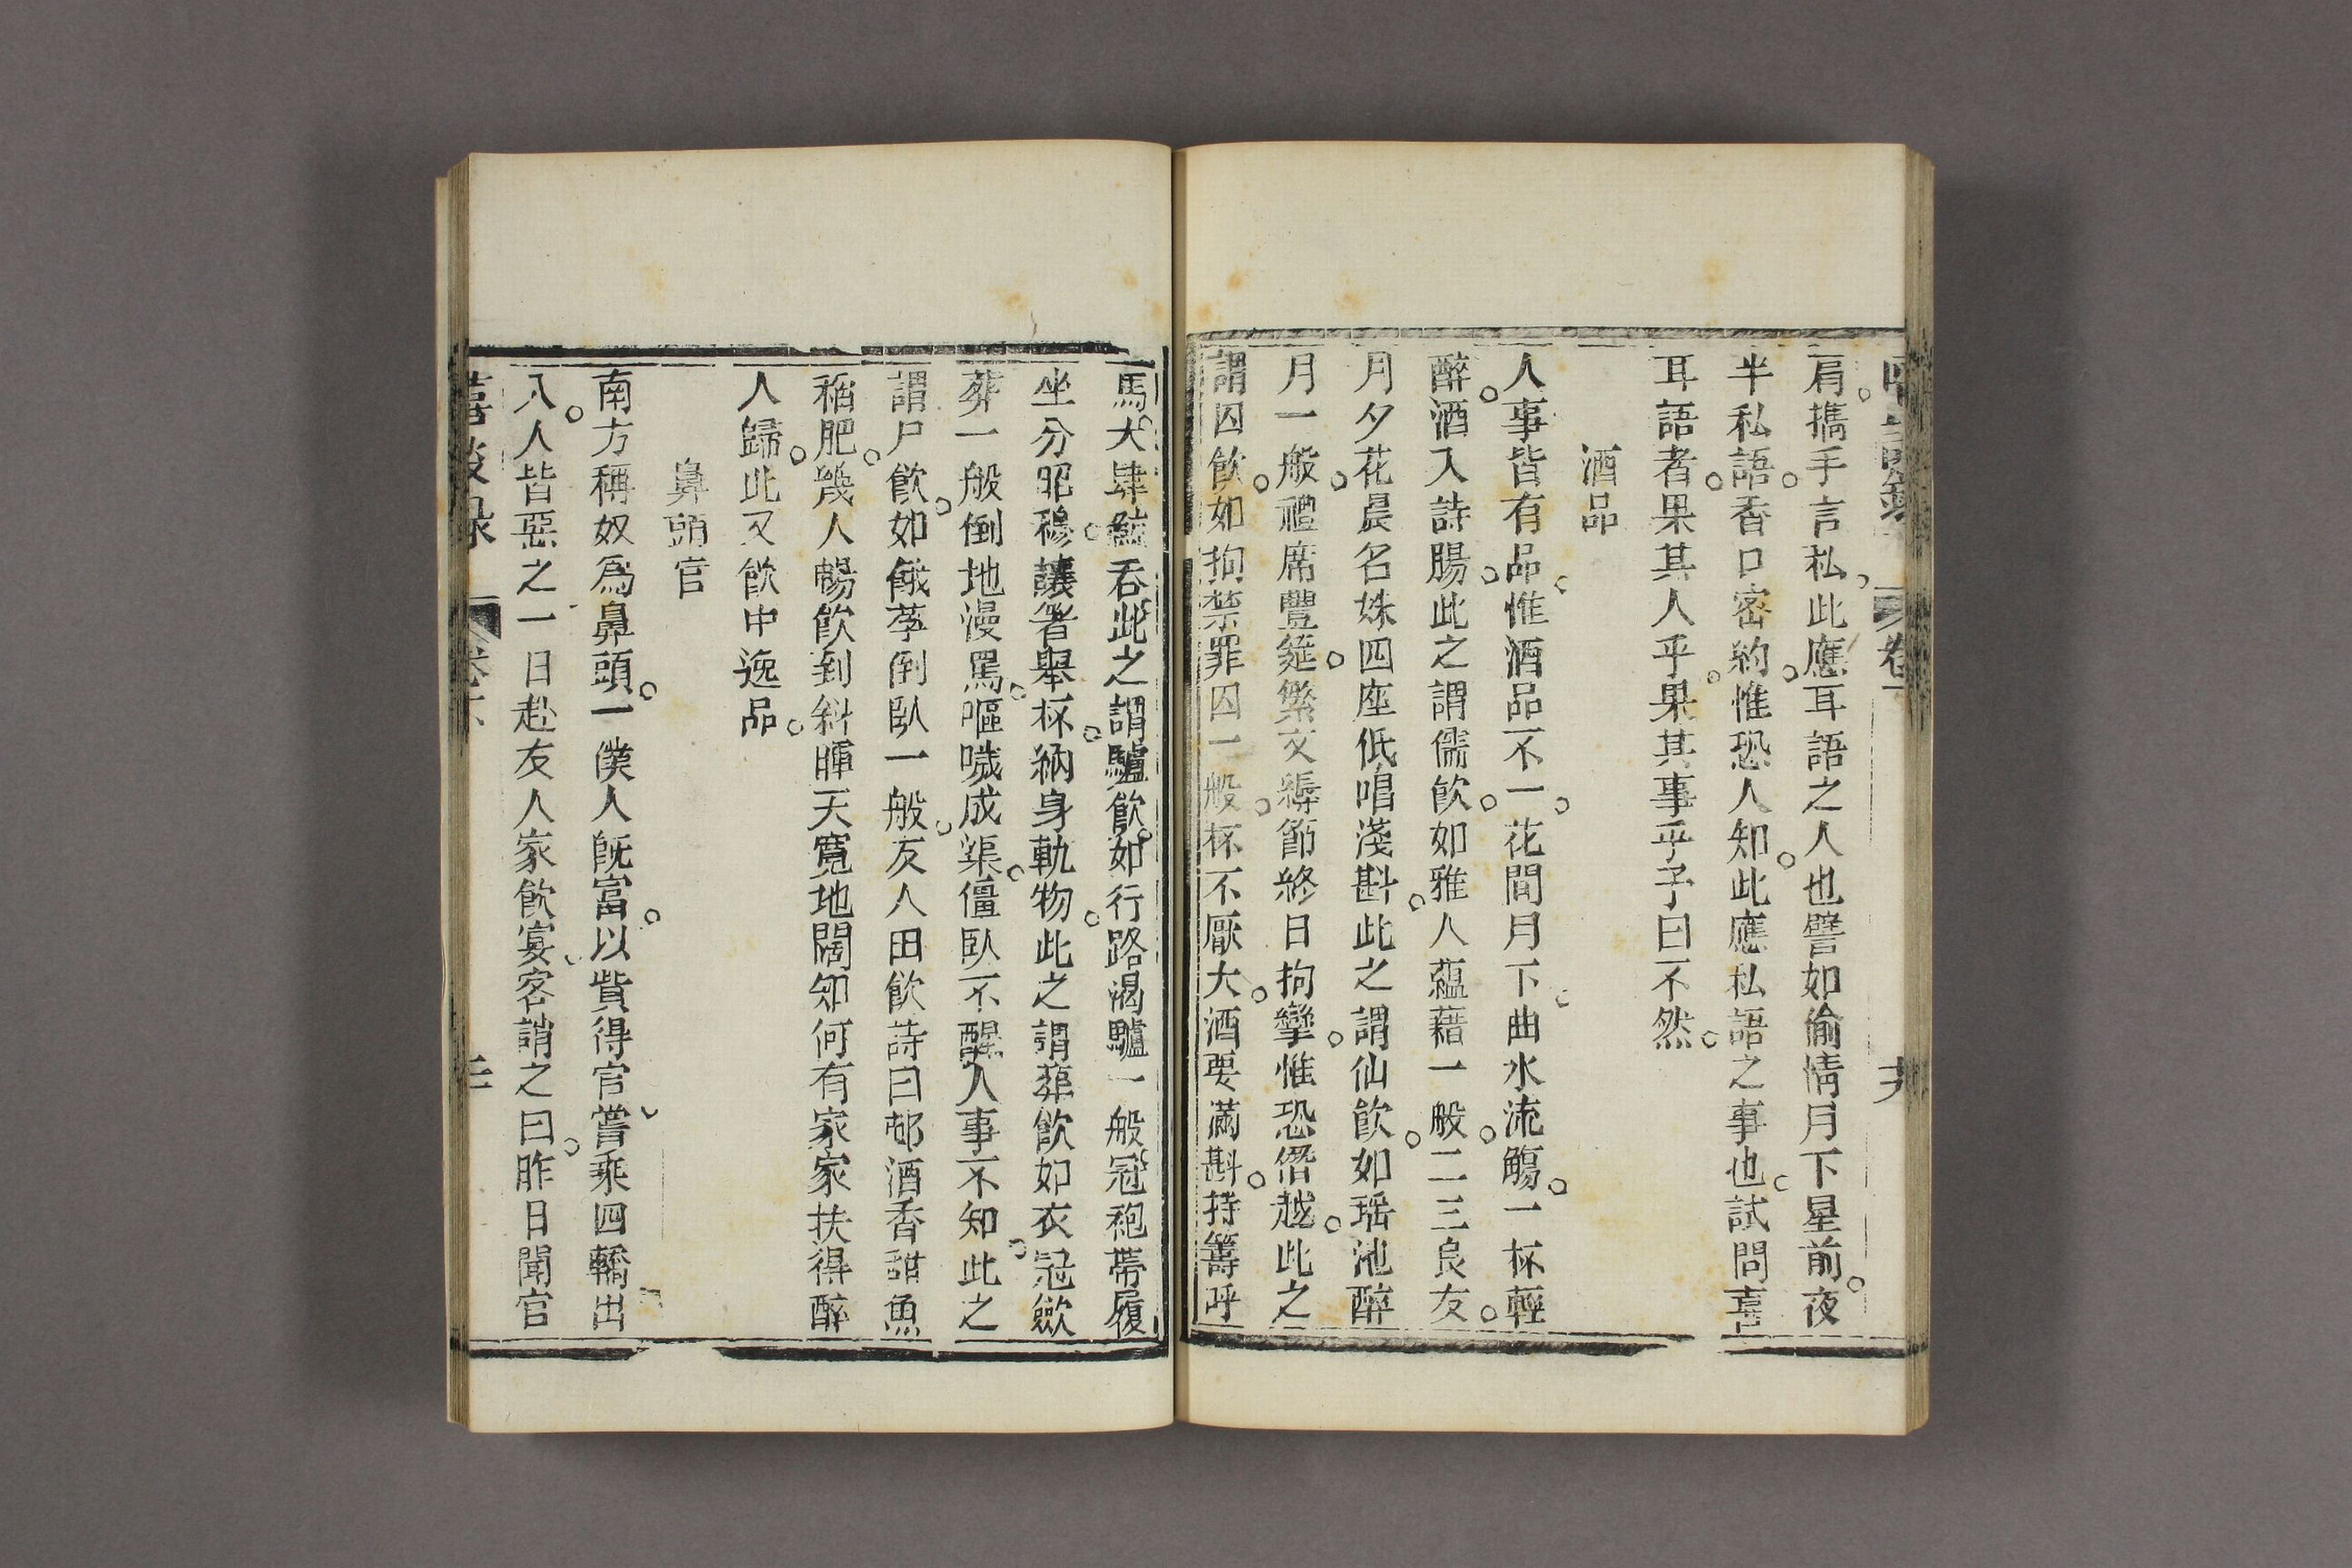 卷下
肩擕手言私此應耳語之人也譬如偷情月下星前夜
半私語香口密約惟恐人知此應私語之事也試問喜
耳語者果其人乎果其事乎予曰不然
酒品
人事皆有品惟酒品不一花間月下曲水流觴一杯輕
醉酒入詩腸此之謂儒飲如雅人蘊藉一般二三良友
月夕花晨名姝四座低唱淺斟此之謂仙飲如瑶池醉
月一般禮席豐筵繁文縟節終日拘攣惟恐僭越此之
謂囚飲如拘禁罪囚一般杯不厭大酒要滿斟持籌呼
馬犬肆鯨吞此之謂驢飲如行路渴驢一般冠袍帶履
坐分昭穆讓箸舉杯納身軌物此之謂葬飲如衣冠歛
葬一般倒地漫罵嘔噦成渠僵臥不醒人事不知此之
謂尸飲如餓莩倒臥一般友人田飲詩曰邨酒香甜魚
稻肥幾人暢飲到斜暉天寬地闊知何有家家扶得醉
人歸此又飲中逸品
鼻頭官
南方稱奴爲鼻頭一僕人旣富以貲得官嘗乘四轎出
入人皆惡之一日赴友人家飲宴客誚之曰昨日聞官
喜談录 卷下